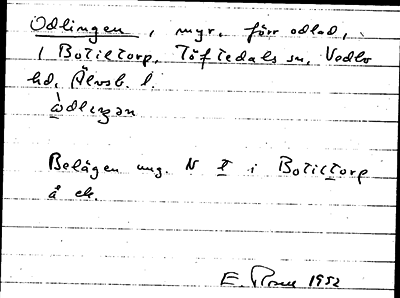 Odlingen, myr, förr odlad,
i Botiltorp, Töftedals sn, Vedbo
hd, Älvsb. l.
òdlıŋən
Belägen ung. N t i Botiltorp
å ek.
E. 1952